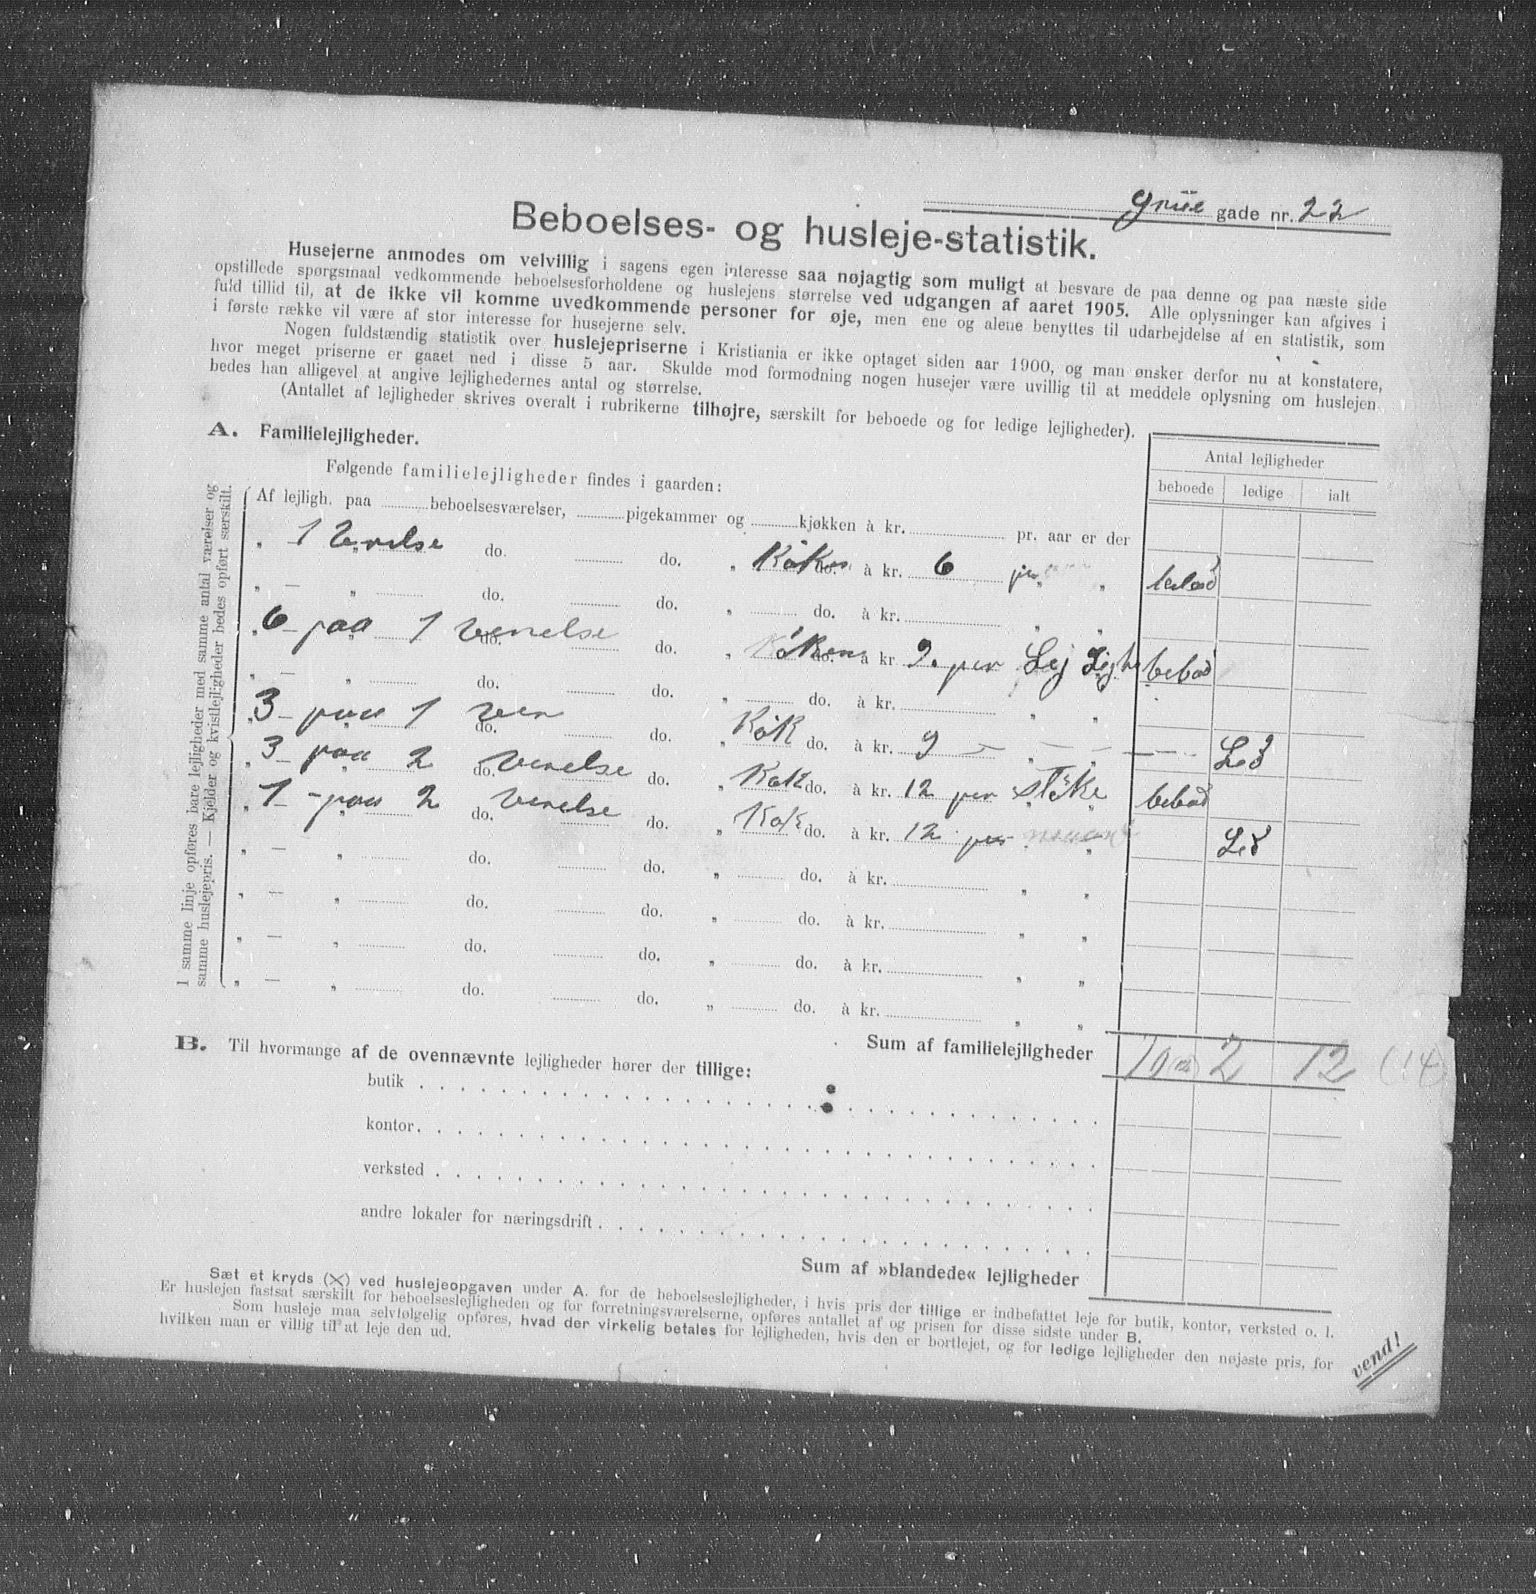 Grüe gade nr. 22
Beboelses- og husleje-statistik.
Husejerne anmodes om velvillig i sagens egen interesse saa nøjagtig som muligt at besvare de paa denne og paa næste side
opstillede spørgsmaal vedkommende beboelsesforholdene og huslejens størrelse ved udgangen af aaret 1905. Alle oplysninger kan afgives i
fuld tillid til, at de ikke vil komme uvedkommende personer for øje, men ene og alene benyttes til udarbejdelse af en statistik, som
i første række vil være af stor interesse for husejerne selv.
Nogen fuldstændig statistik over huslejepriserne i Kristiania er ikke optaget siden aar 1900, og man ønsker derfor nu at konstatere,
hvor meget priserne er gaaet ned i disse 5 aar. Skulde mod formodning nogen husejer være uvillig til at meddele oplysning om huslejen
bedes han alligevel at angive lejlighedernes antal og størrelse.
(Antallet af lejligheder skrives overalt i rubrikerne tilhøjre, særskilt for beboede og for ledige lejligheder).
A. Familielejligheder.
Antal lejligheder
beboede ledige ialt
Følgende familielejligheder findes i gaarden:
I samme linje opføres bare lejligheder med samme antal værelser og
samme huslejepris. — Kjelder og kvistlejligheder bedes opført særskilt.
Af lejligh. paa beboelsesværelser, pigekammer og kjøkken à kr. pr. aar er der
" 1 do. do. " do. à kr. 6 "
" — " do. do. " do. à kr. " "
" 6 — paa 1 verelse do. do. " do. à kr. 9. per Lej bebod
" — " do. do. " do. à kr. " "
" 3 — paa 1 ver do. do. " Køk do. à kr. 9 — — — — Led
" 3 — paa 2 Verelse do. do. " Køk do. à kr. 12 per støke bebod
" 1 — paa 2 Verelse do. do. " Køk do. à kr. 12 per Led
" — " do. do. " do. à kr. " "
" — " do. do. " do. à kr. " "
" — " do. do. " do. à kr. " "
" — " do. do. " do. à kr. " "
Sum af familielejligheder 10 2 12 (14)
B. Til hvormange af de ovennævnte lejligheder hører der tillige:
butik
kontor
verksted
andre lokaler for næringsdrift
Sum af »blandede« lejligheder
Sæt et kryds (X) ved huslejeopgaven under A. for de beboelseslejligheder, i hvis pris der tillige er indbefattet leje for butik, kontor, verksted o. l.
Er huslejen fastsat særskilt for beboelseslejligheden og for forretningsværelserne, opføres antallet af og prisen for disse sidste under B.
Som husleje maa selvfølgelig opføres, hvad der virkelig betales for lejligheden, hvis den er bortlejet, og for ledige lejligheder den nøjaste pris, for
hvilken man er villig til at leje den ud.
vend!